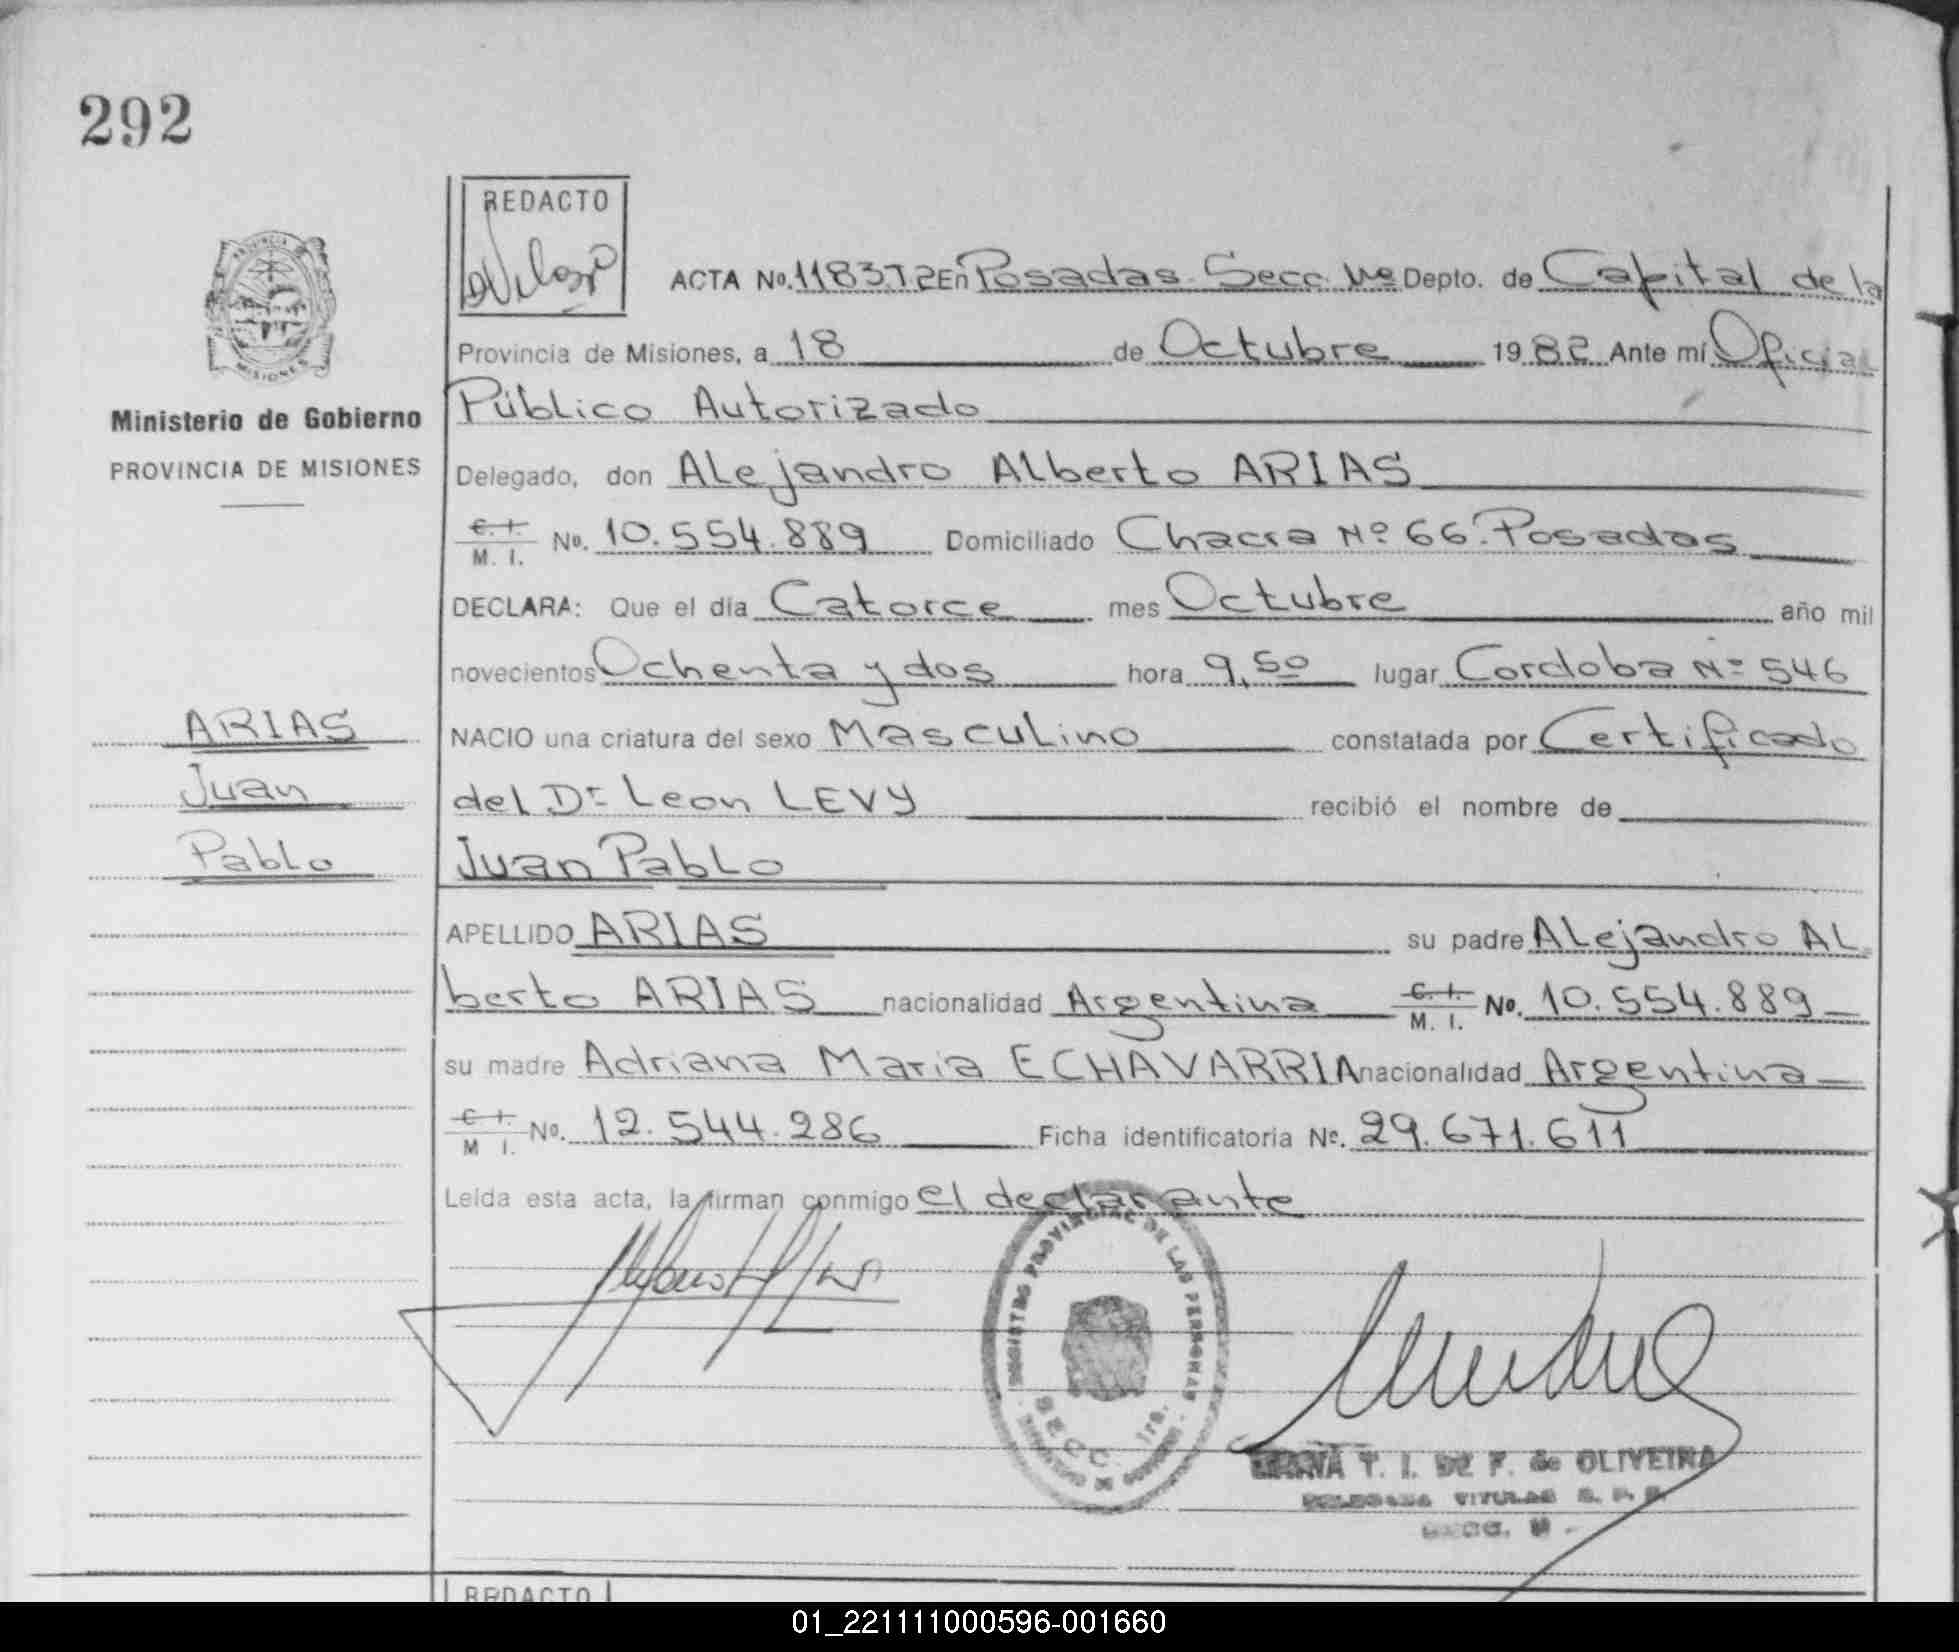 292
REDACTO
ACTA No. 1183T2 En Posadas Secc. 1ra Depto. de Capital de la
Provincia de Misiones, a 18 de Octubre 1982 Ante mí Oficial
Público Autorizado
Ministerio de Gobierno
PROVINCIA DE MISIONES
Delegado, don ALejandro Alberto ARIAS
C. I. / M. I. No. 10.554.889 Domiciliado Chacra Nº 66. Posadas
DECLARA: Que el día Catorce mes Octubre año mil
novecientos Ochenta y dos hora 9,50 lugar Cordoba Nº 546
NACIO una criatura del sexo Masculino constatada por Certificado
del Dr Leon LEVY recibió el nombre de
Juan Pablo
ARIAS
Juan
Pablo
APELLIDO ARIAS su padre ALejandro AL
berto ARIAS nacionalidad Argentina C. I. / M. I. No. 10.554.889
su madre Adriana Maria ECHAVARRIA nacionalidad Argentina
C. I. / M. I. No. 12.544.286 Ficha identificatoria No. 29.671.611
Leída esta acta, la firman conmigo el declarante
REGISTRO PROVINCIAL DE LAS PERSONAS
SECC. 1ra.
MARIA T. I. DE F. de OLIVEIRA
DELEGADA TITULAR R. P. P.
SECC.
REDACTO
01_221111000596-001660